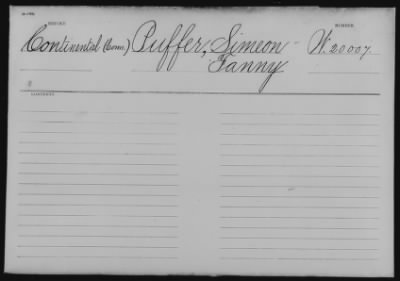 SERVICE.
NUMBER.
Continental (Conn.) Puffer, Simeon W. 20007.
Fanny